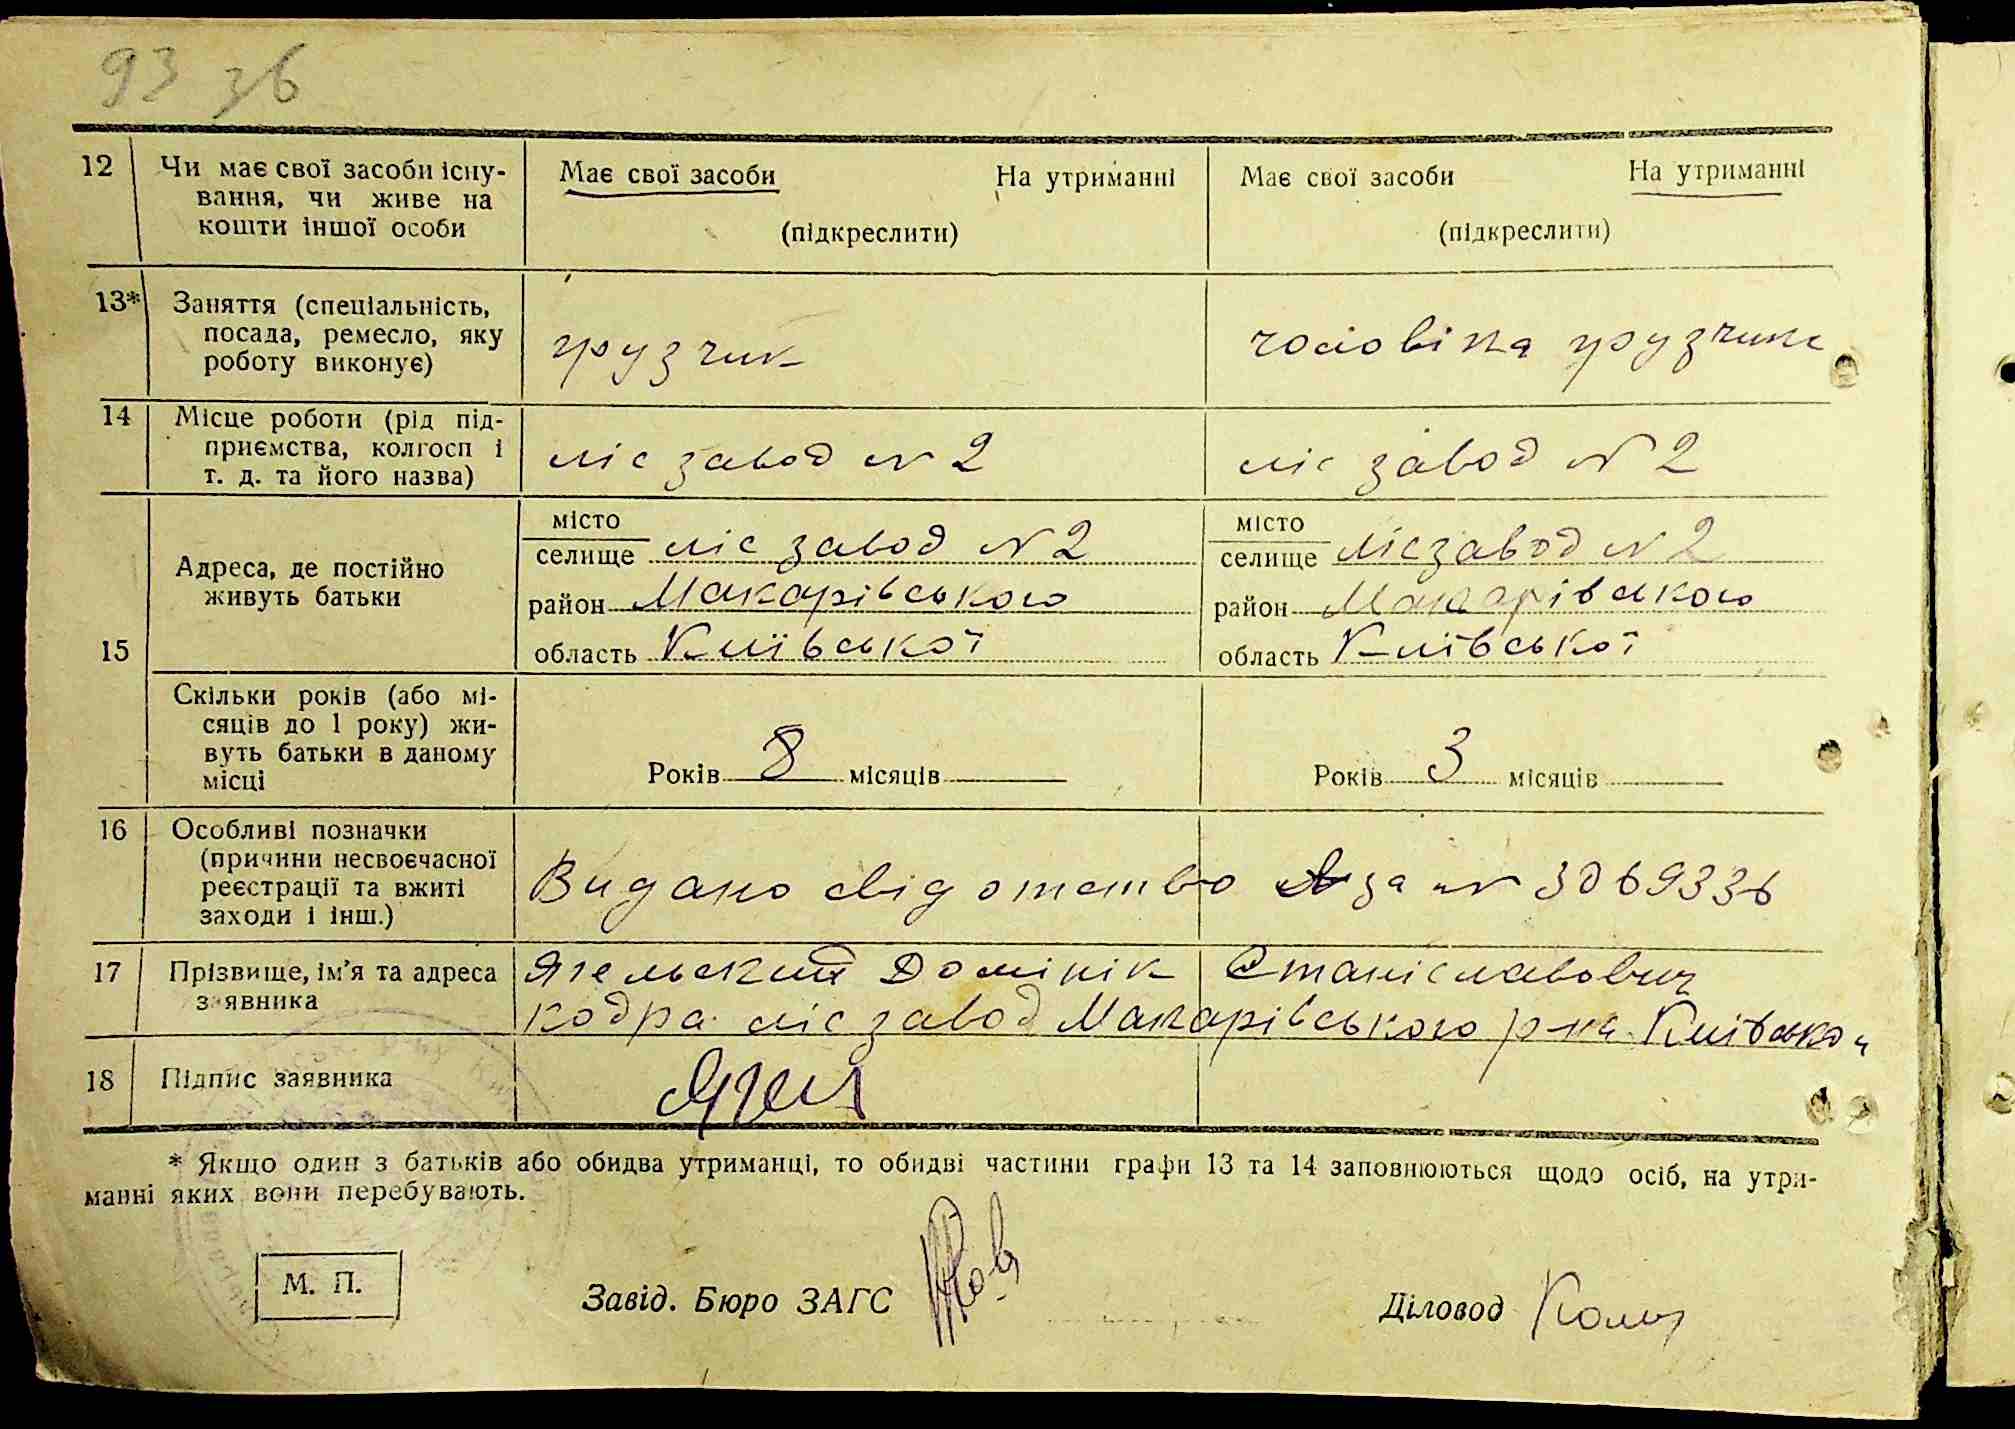 93 зб
12 Чи має свої засоби існу- Має свої засоби На утриманні Має свої засоби На утриманні
вання, чи живе на
кошти іншої особи (підкреслити) (підкреслити)
13* Заняття (спеціальність,
посада, ремесло, яку грузчик чоловіка грузчик
роботу виконує)
14 Місце роботи (рід під-
приємства, колгосп і ліс завод № 2 ліс завод № 2
т. д. та його назва)
15 Адреса, де постійно
живуть батьки
місто місто
селище ліс завод № 2 селище лісзавод № 2
район Макарівського район Макарівського
область Київської область Київської
Скільки років (або мі-
сяців до 1 року) жи-
вуть батьки в даному
місці Років 8 місяців Років 3 місяців
16 Особливі позначки
(причини несвоєчасної
реєстрації та вжиті Видано свідотство за № 3069336
заходи і інш.)
17 Прізвище, ім'я та адреса Ягельский Домінік Станіславович
заявника кодра ліс завод Макарівського р-на Київсько
18 Підпис заявника
* Якщо один з батьків або обидва утриманці, то обидві частини графи 13 та 14 заповнюються щодо осіб, на утри-
манні яких вони перебувають.
М. П. Завід. Бюро ЗАГС Діловод